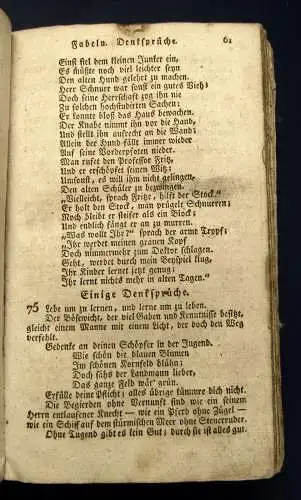 Fabeln. Denksprüche. 61
Einst fiel dem kleinen Junker ein,
Es müßte noch viel leichter seyn
Den alten Hund gelehrt zu machen.
Herr Schnurr war sonst ein gutes Vieh;
Doch seine Herrschaft zog ihn nie
Zu solchen hochstudirten Sachen;
Er konnte bloß das Haus bewachen.
Der Knabe nimmt ihn vor die Hand,
Und stellt ihn aufrecht an die Wand;
Allein der Hund fällt immer wieder
Auf seine Vorderpfoten nieder.
Man rufet den Professor Fritz,
Und er erschöpfet seinen Witz;
Umsonst, es will ihm nicht gelingen,
Den alten Schüler zu bezwingen.
„Vielleicht, sprach Fritz, hilft der Stock.“
Er holt den Stock, man prügelt Schnurren;
Noch bleibt er steifer als ein Block;
Und endlich fängt er an zu murren.
„Was wollt Ihr?“ sprach der arme Tropf;
„Ihr werdet meinen grauen Kopf
Doch nimmermehr zum Doktor schlagen.
Geht, werdet durch mein Beyspiel klug,
Ihr Kinder lernet jetzt genug;
Ihr lernt nichts mehr in alten Tagen.“
Einige Denksprüche.
75 Lebe um zu lernen, und lerne um zu leben.
Der Bösewicht, der viel Gaben und Kenntnisse besitzt,
gleicht einem Manne mit einem Licht, der doch den Weg
verfehlt.
Gedenke an deinen Schöpfer in der Jugend.
Wie schön die blauen Blumen
Im schönen Kornfeld blühn;
Doch sähs der Landmann lieber,
Das ganze Feld wär' grün.
Erfülle deine Pflicht; alles übrige kümmre dich nicht.
Die Begierden ohne Vernunft sind wie ein seinem
Herrn entlaufener Knecht — wie ein Pferd ohne Zügel —
wie ein Schiff auf dem stürmischen Meer ohne Steuerruder.
Ohne Tugend gibt es kein Gut; durch sie ist alles gut.